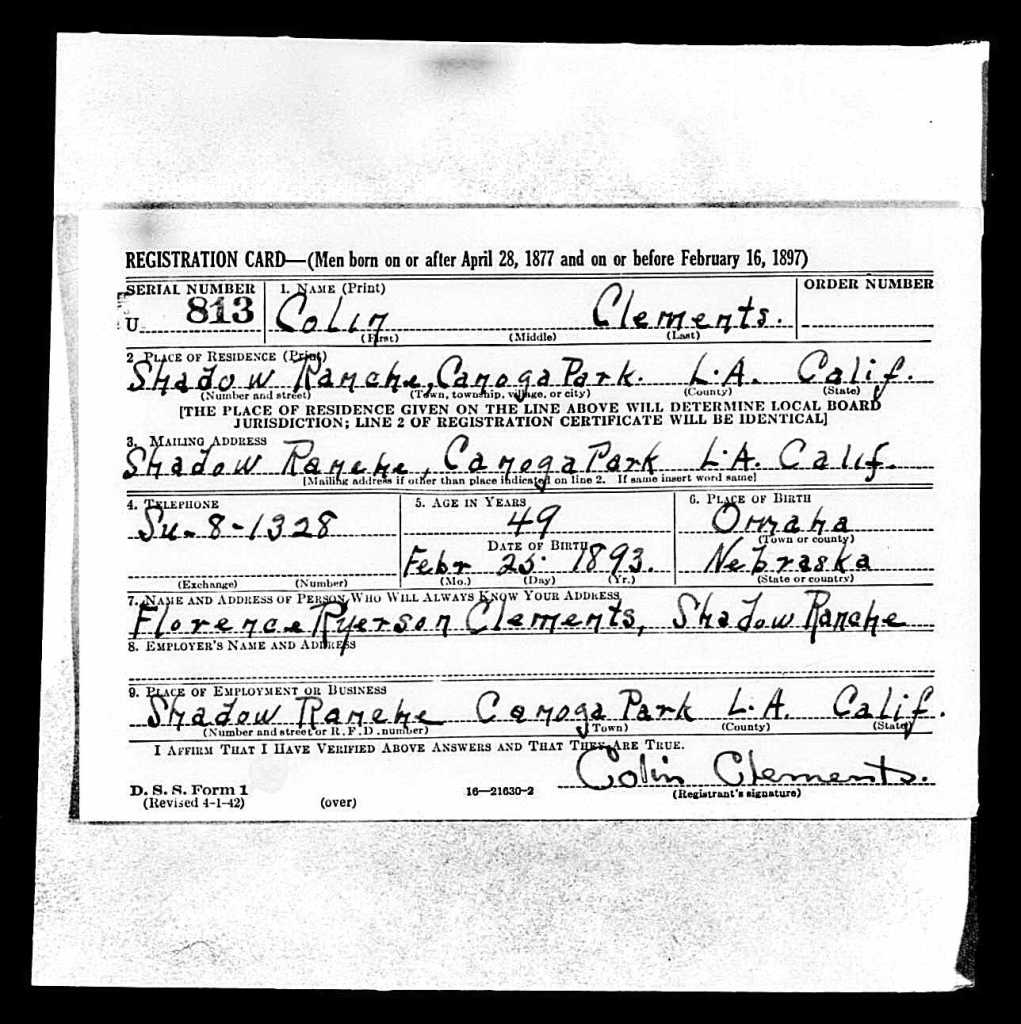 REGISTRATION CARD—(Men born on or after April 28, 1877 and on or before February 16, 1897)
SERIAL NUMBER 1. NAME (Print) ORDER NUMBER
U 813 Colin Clements.
(First) (Middle) (Last)
2 PLACE OF RESIDENCE (Print)
Shadow Ranche, Canoga Park. L.A. Calif.
(Number and street) (Town, township, village, or city) (County) (State)
[THE PLACE OF RESIDENCE GIVEN ON THE LINE ABOVE WILL DETERMINE LOCAL BOARD
JURISDICTION; LINE 2 OF REGISTRATION CERTIFICATE WILL BE IDENTICAL]
3. MAILING ADDRESS
Shadow Ranche, Canoga Park L.A. Calif.
[Mailing address if other than place indicated on line 2. If same insert word same]
4. TELEPHONE 5. AGE IN YEARS 6. PLACE OF BIRTH
Su-8-1328 49 Omaha
DATE OF BIRTH (Town or county)
Febr 25. 1893. Nebraska
(Exchange) (Number) (Mo.) (Day) (Yr.) (State or country)
7. NAME AND ADDRESS OF PERSON WHO WILL ALWAYS KNOW YOUR ADDRESS
Florence Ryerson Clements, Shadow Ranche
8. EMPLOYER'S NAME AND ADDRESS
9. PLACE OF EMPLOYMENT OR BUSINESS
Shadow Ranche Canoga Park L.A. Calif.
(Number and street or R. F. D. number) (Town) (County) (State)
I AFFIRM THAT I HAVE VERIFIED ABOVE ANSWERS AND THAT THEY ARE TRUE.
Colin Clements.
D. S. S. Form 1 16—21630-2 (Registrant's signature)
(Revised 4-1-42) (over)